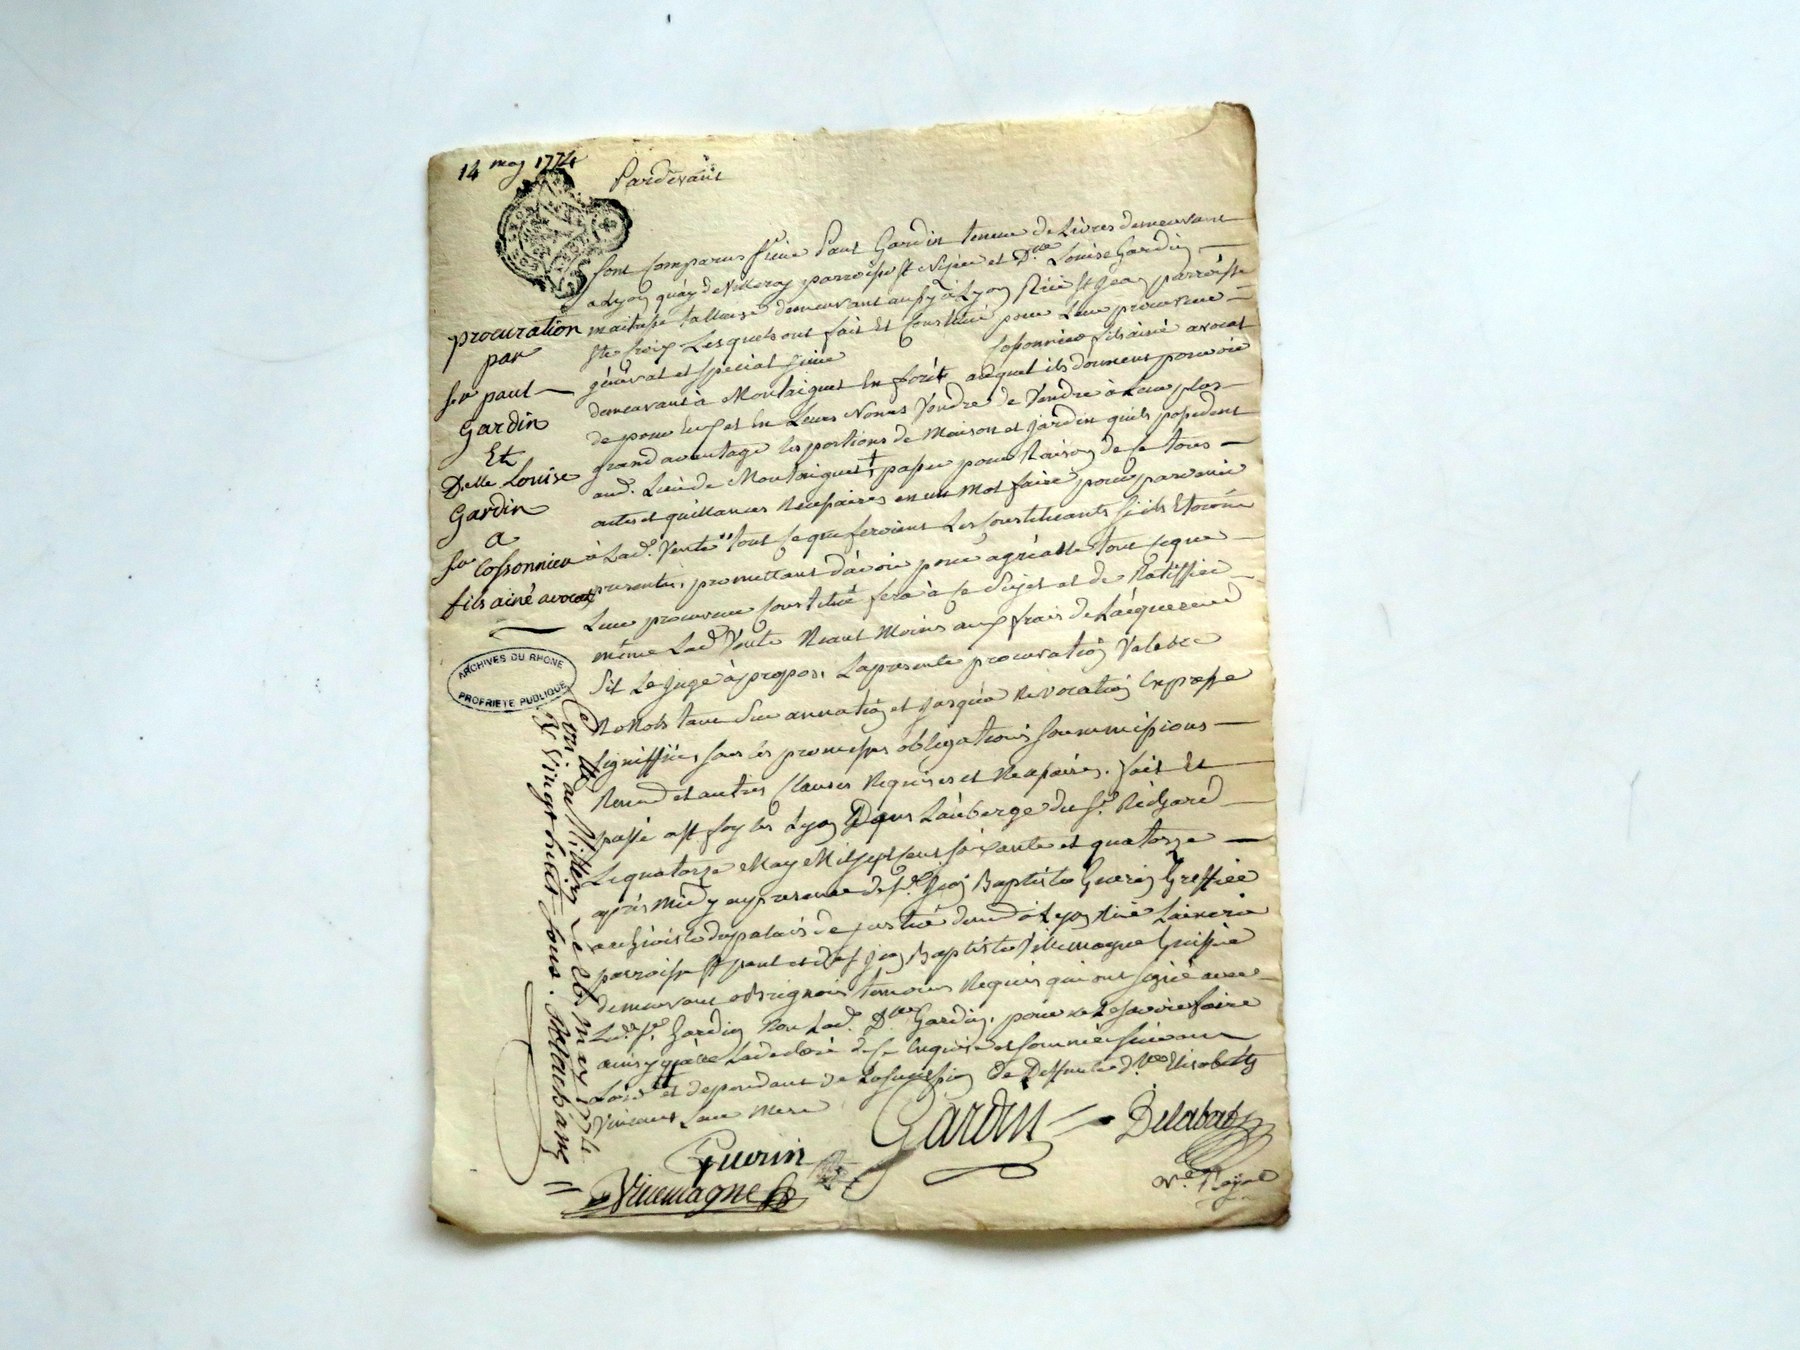 14 may 1774
Pardevant
sont comparus Sieur Paul Gardin teneur de Livres demeurant
a Lyon quay de Villeroy parroisse St Nizier et Dlle Louise Gardin
maitresse tailleuse demeurant aussy à Lyon Rüe St Jean parroisse
Ste Croix Lesquels ont fait et Constitué pour Leur procureur
général et special Sieur Cossonnieu fils ainé avocat
demeurant à Montaiguet En forêt auquel ils donnent pouvoir
de pour Eux et en Leurs Noms Vendre de Vendre à Leur plus
grand avantage les portions de Maison et jardin qu'ils possedent
aud. Lieu de Montaiguet † passer pour Raison de ce tous
actes et quittances Necessaires en un Mot faire pour parvenir
à Lad. Vente tout ce que feroient Les Constituants s'ils Etoient
presents, promettant d'avoir pour agréable tout ce que
Leur procureur Constitué fera à ce Sujet et de Ratiffier
même Lad. Vente Neant Moins aux frais de L'acquereur
S'il Le juge àpropos, La presente procuration Valable
Nonobstant Sur annation et jusqu'a Revocation Expresse
signiffiée, sous les promesses obligations soummissions
Renon et autres Clauses Requises et Necessaires. fait et
passé aff foy les Lyon Dans L'auberge du Sr. Richard
Le quatorze May Mil sept cent soixante et quatorze
après midy en presence de Sr. Jean Baptiste Guerin Greffier
archiviste du palais de justice demt à Lyon Rüe Lainerie
parroisse St paul et de Sr Jean Baptiste Villemagne huissier
demeurant a Brignais temoins Requis qui ont signé avec
Led. Sr. Gardin Non Lad. Dlle Gardin, pour ne Le savoir faire
ainsy qu'elle L'a declaré de ce Enquise et sommée suivant
† et dependant de La succession de Deffunte d. Elisabeth
Leur Mere
Gardin
Delabat
Guerin
Villemagne
nre Royal
procuration
par
Sr paul
Gardin
Et
Delle Louise
Gardin
a
Sr Cossonnieu
fils ainé avocat
ARCHIVES DU RHONE
PROPRIETE PUBLIQUE
Conlle a Le 26 may 1774
R Vingt huit sous.